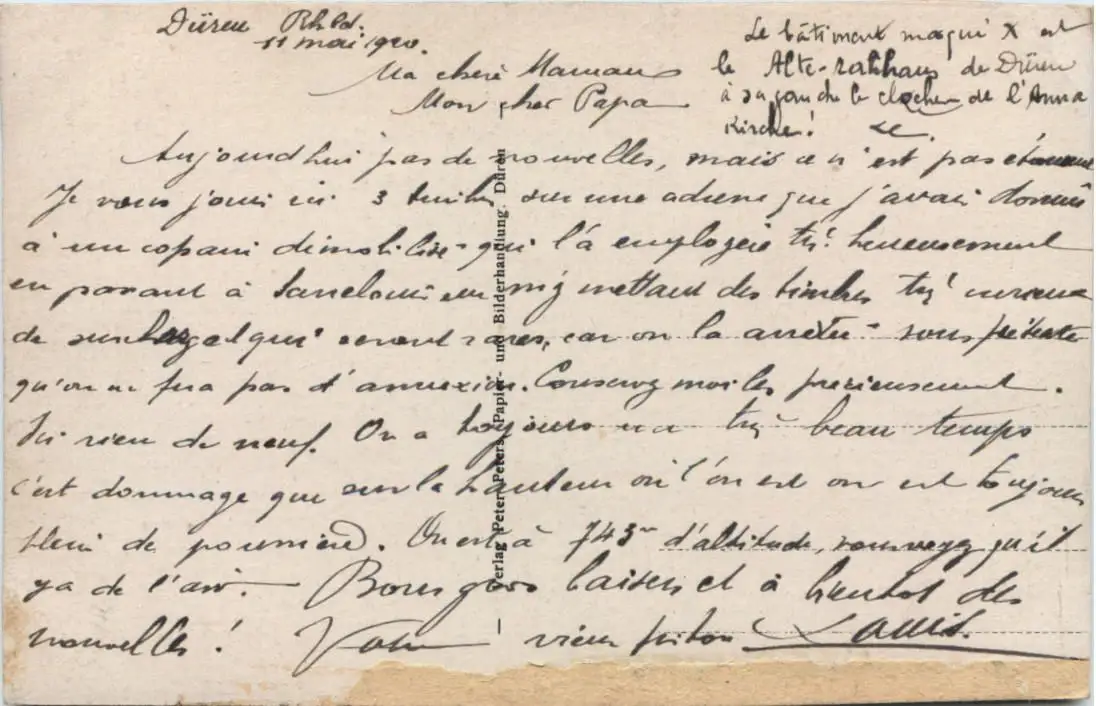 Düren Rhld.
11 mai 1920.
Le bâtiment marqué X est
le Alte-rathaus de Düren
à sa gauche le clocher de l'Anna
Kirche!
Ma chère Maman
Mon cher Papa
Aujourd'hui pas de nouvelles, mais ce n'est pas étonnant
Je vous joins ici 3 timbres sur une adresse que j'avais donnée
à un copain démobilisé qui l'a employée très heureusement
en passant à Sarrelouis en m'y mettant des timbres très curieux
de surcharge et qui seront rares, car on la arrêtée sous prétexte
qu'on ne fera pas d'annexion. Conservez moi les précieusement.
Ici rien de neuf. On a toujours un très beau temps
c'est dommage que sur la hauteur où l'on est on est toujours
plein de poussière. On est à 743m d'altitude, vous voyez qu'il
y a de l'air. Bons gros baisers et à bientôt des
nouvelles! Votre vieux piton Louis.
Verlag Peter Peters, Papier- und Bilderhandlung. Düren